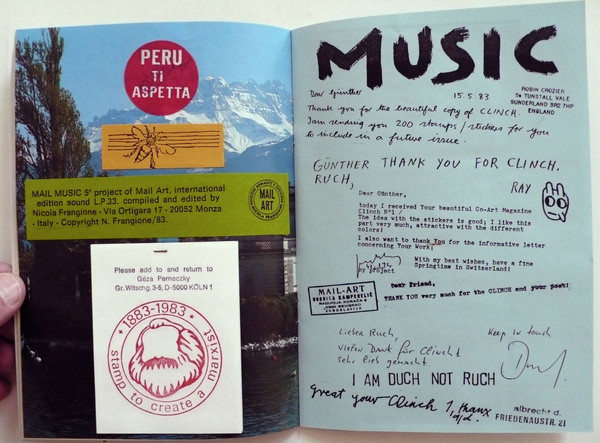 PERU
TI
ASPETTA
MAIL MUSIC 5° project of Mail Art, international
edition sound L.P.33. compiled and edited by
Nicola Frangione - Via Ortigara 17 - 20052 Monza
- Italy - Copyright N. Frangione/83.
MAIL
ART
Please add to and return to
Géza Perneczky
Gr. Witschg. 3-5, D-5000 KÖLN 1
·1883-1983·
stamp to create a marxist
MUSIC
Dear Günther
15.5.83
ROBIN CROZIER
5a TUNSTALL VALE
SUNDERLAND SR2 7HP
ENGLAND
Thank you for the beautiful copy of CLINCH.
I am sending you 200 stamps/stickers for you
to include in a future issue.
GÜNTHER THANK YOU FOR CLINCH.
RUCH,
RAY
Dear Günther,
today I received Your beautiful Co-Art Magazine
Clinch N°1 /
The idea with the stickers is good; I like this
part very much, attractive with the different
colors!
I also want to thank You for the informative letter
concerning Your Work;
With my best wishes, have a fine
Springtime in Switzerland!
by project
MAIL-ART
DOBRICA KAMPERELIC
11000 BEOGRAD
JUGOSLAVIJA
Dear Friend,
THANK YOU very much for the CLINCH and your post!
Lieber Ruch,
Keep in touch
vielen Dank für Clinch!
sehr lieb gemacht.
I AM DUCH NOT RUCH
great your Clinch 1, thanx
albrecht d.
FRIEDENAUSTR. 21